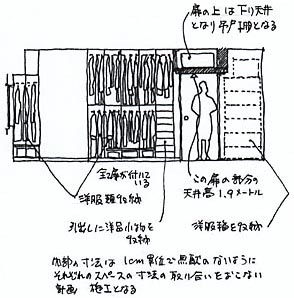 扉の上は下り天井
となり吊戸棚となる
全て扉が付いて
いる
洋服類を収納
引出しに洋品小物を
収納
この扉の部分の
天井高1.9メートル
洋服類を収納
内部の寸法は1cm単位で無駄のないように
それぞれのスペースの寸法の取り合いをおこない
計画 施工となる